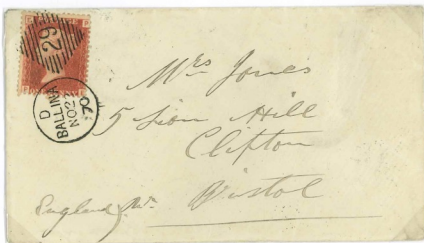 29
D
BALLINA
NO 22
70
Mrs Jones
5 Sion Hill
Clifton
Bristol
England